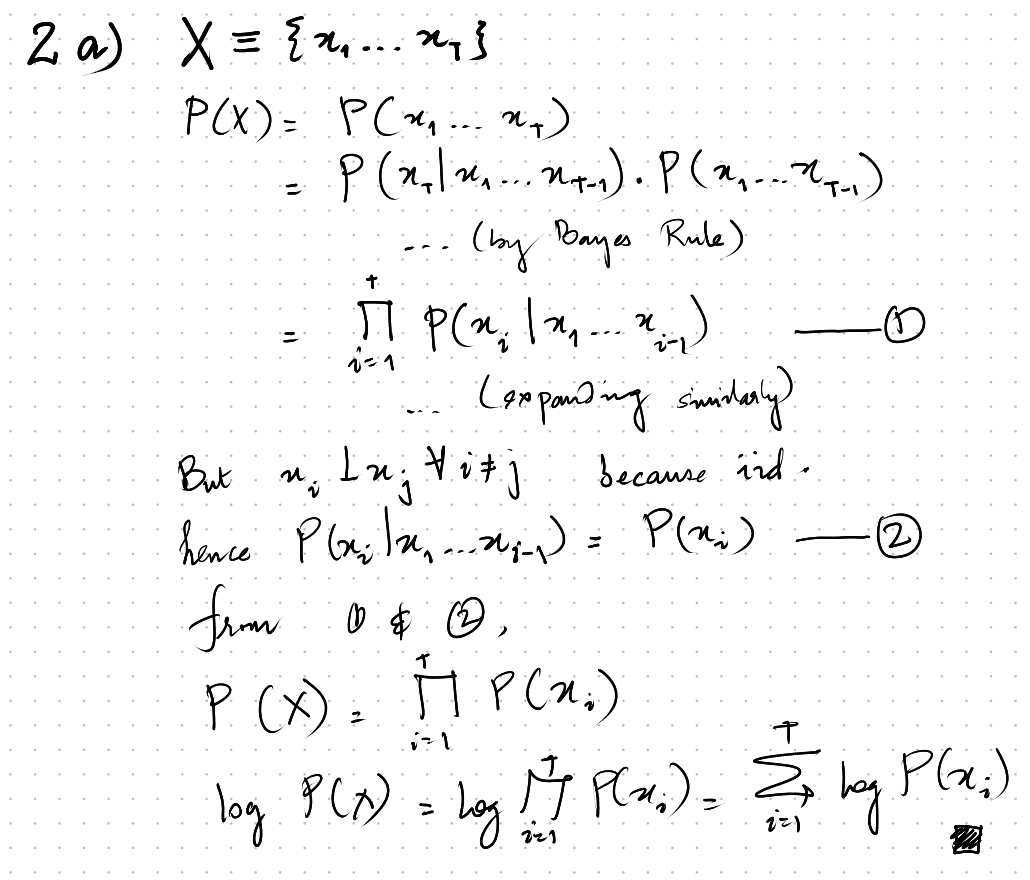 2 a) X ≡ {x₁ ... x_T}
P(X) = P(x₁ ... x_T)
= P(x_T | x₁ ... x_{T-1}) . P(x₁ ... x_{T-1})
... (by Bayes Rule)
= ∏_{i=1}^{T} P(x_i | x₁ ... x_{i-1}) —— ①
... (expanding similarly)
But x_i ⊥ x_j ∀ i ≠ j because iid .
hence P(x_i | x₁ ... x_{i-1}) = P(x_i) —— ②
from ① & ②,
P (X) = ∏_{i=1}^{T} P(x_i)
log P(X) = log ∏_{i=1}^{T} P(x_i) = ∑_{i=1}^{T} log P(x_i)